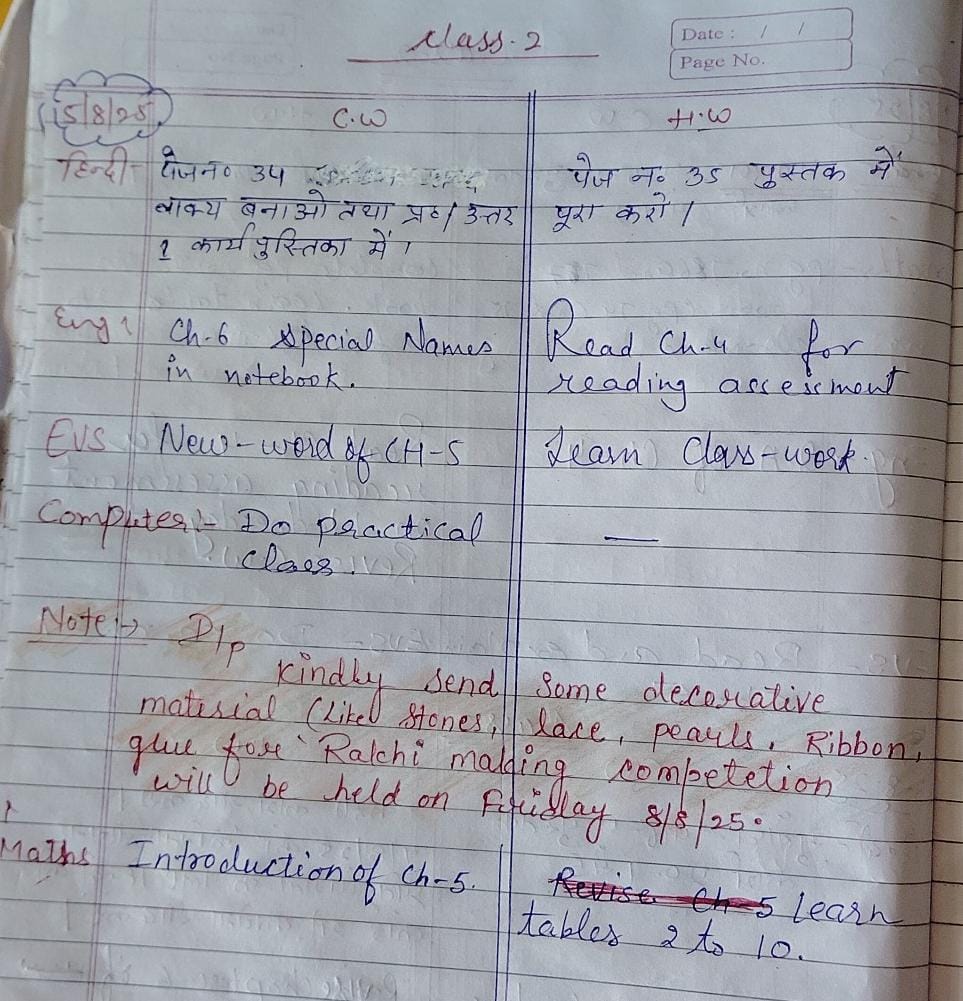 Class-2
Date : / /
Page No.
5/8/25
C.W
H.W
हिन्दी- पेज न० 34
वाक्य बनाओ तथा प्रश्न/उत्तर
1 कार्य पुस्तिका में।
पेज न० 35 पुस्तक में
पूरा करो।
Eng
Ch-6 Special Names
in notebook.
Read Ch-4 for
reading assessment
EVS New-word of CH-5
Learn Class-work.
Computer:- Do practical
class.
—
Note:-> D/p
kindly send some decorative
material (Like stones, lace, pearls, Ribbon,
glue for Rakhi making competetion
will be held on Friday 8/8/25.
Maths Introduction of Ch-5.
Revise Ch-5 Learn
tables 2 to 10.